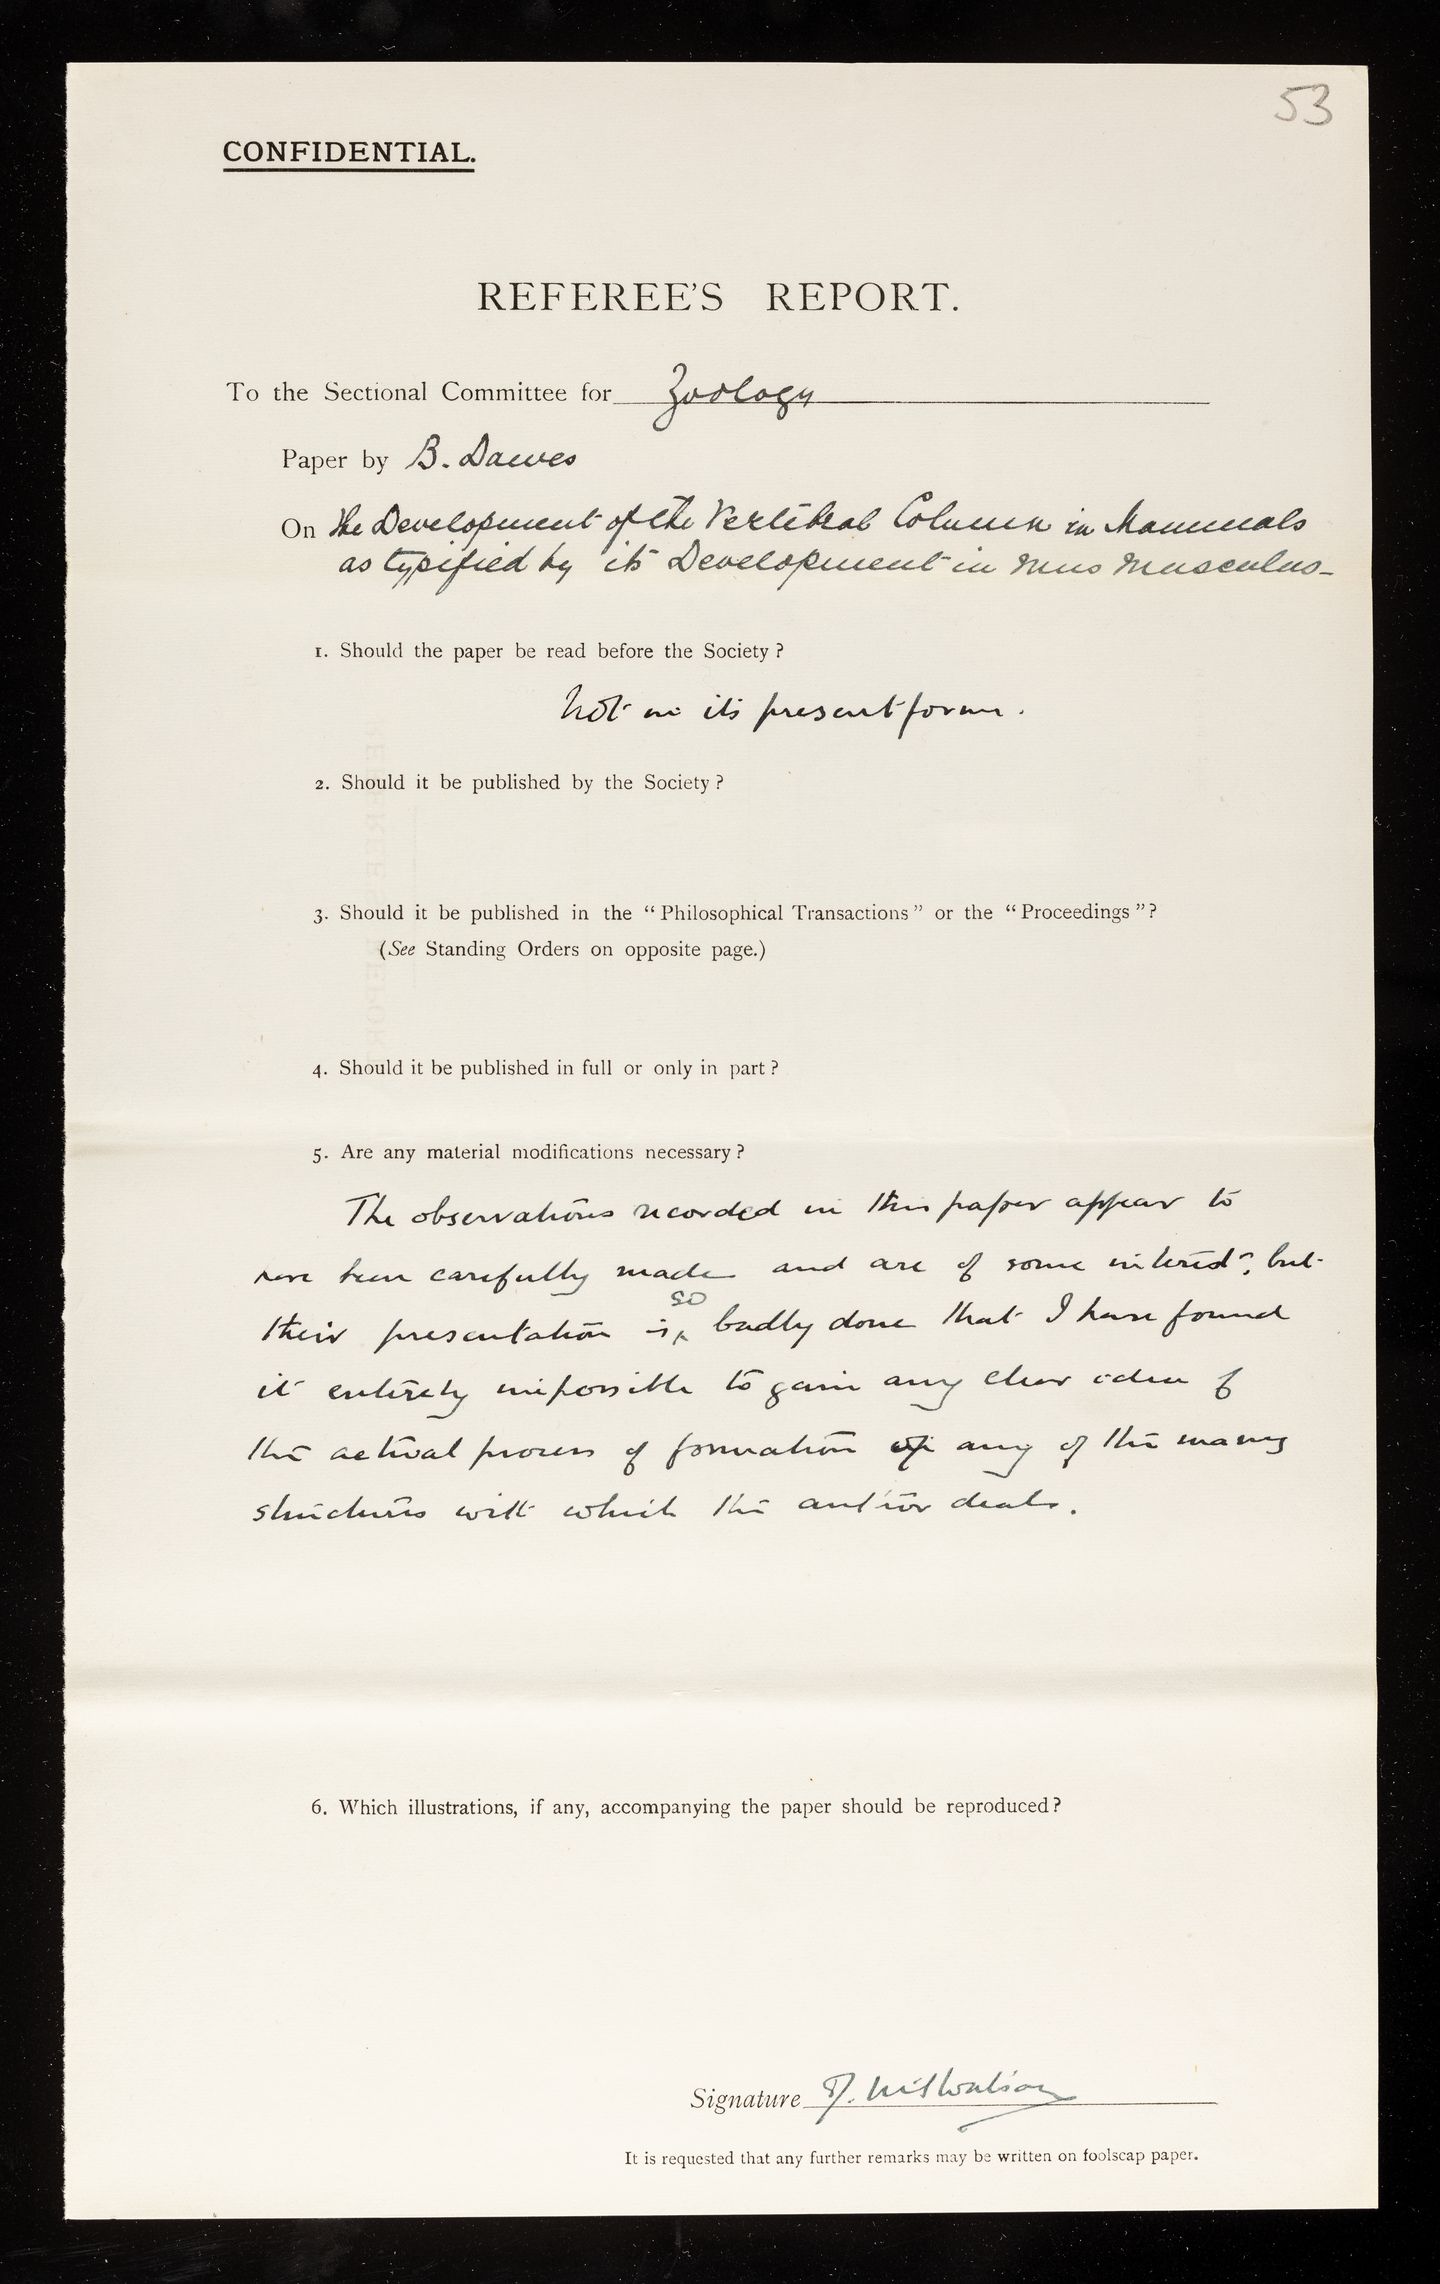 53
CONFIDENTIAL.
REFEREE'S REPORT.
To the Sectional Committee for Zoology
Paper by B. Dawes
On The Development of the Vertebral Column in Mammals
as typified by its Development in Mus Musculus_
1. Should the paper be read before the Society?
Not in its present form.
2. Should it be published by the Society?
3. Should it be published in the "Philosophical Transactions" or the "Proceedings"?
(See Standing Orders on opposite page.)
4. Should it be published in full or only in part?
5. Are any material modifications necessary?
The observations recorded in this paper appear to
have been carefully made and are of some interest, but
so
their presentation is badly done that I have found
it entirely impossible to gain any clear idea of
the actual process of formation of any of the many
structures with which the author deals.
6. Which illustrations, if any, accompanying the paper should be reproduced?
Signature D.M.S. Watson
It is requested that any further remarks may be written on foolscap paper.